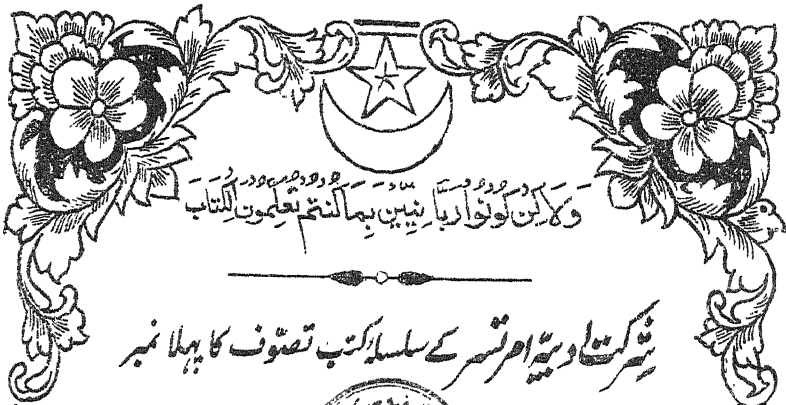 وَلَاكِنْ كُونُوا رَبَّانِيِّينَ بِمَا كُنْتُمْ تُعَلِّمُونَ الْكِتَابَ
شرکت ادبیہ امرتسر کے سلسلہ کتب تصوّف کا پہلا نمبر